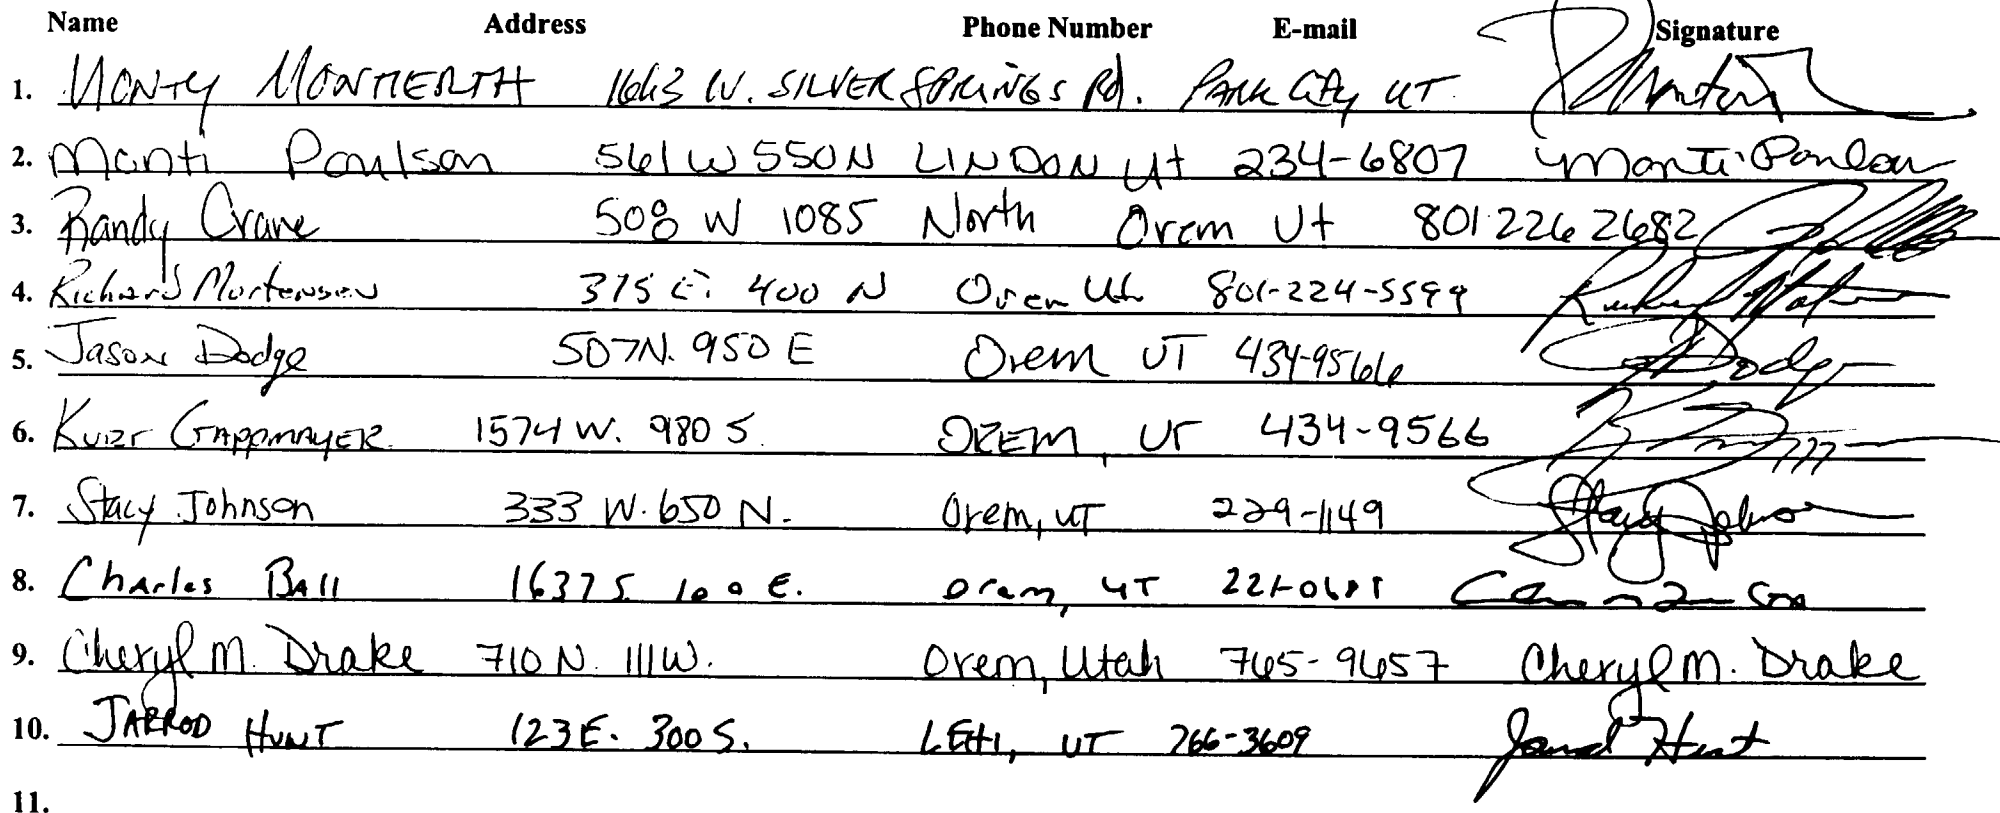 Name Address Phone Number E-mail Signature
1. MONTY MONTIERTH 1643 W. SILVER SPRINGS Rd. PARK City UT
2. Manti Poulson 561 W 550 N LINDON Ut 234-6807 Manti Poulson
3. Randy Crane 508 W 1085 North Orem Ut 801 226 2682
4. Richard Mortensen 375 E. 400 N Orem Ut. 801-224-5599
5. Jason Dodge 507 N. 950 E Orem UT 434-9566 Dodge
6. KURT GAPPMAYER 1574 W. 980 S. OREM, UT 434-9566
7. Stacy Johnson 333 W. 650 N. Orem, UT 229-1149 Stacy Johnson
8. Charles Ball 1637 S. 100 E. Orem, UT
9. Cheryl M. Drake 710 N. 111 W. Orem, Utah 765-9657 Cheryl M. Drake
10. JARROD HUNT 123 E. 300 S. LEHI, UT 766-3609 Jarrod Hunt
11.